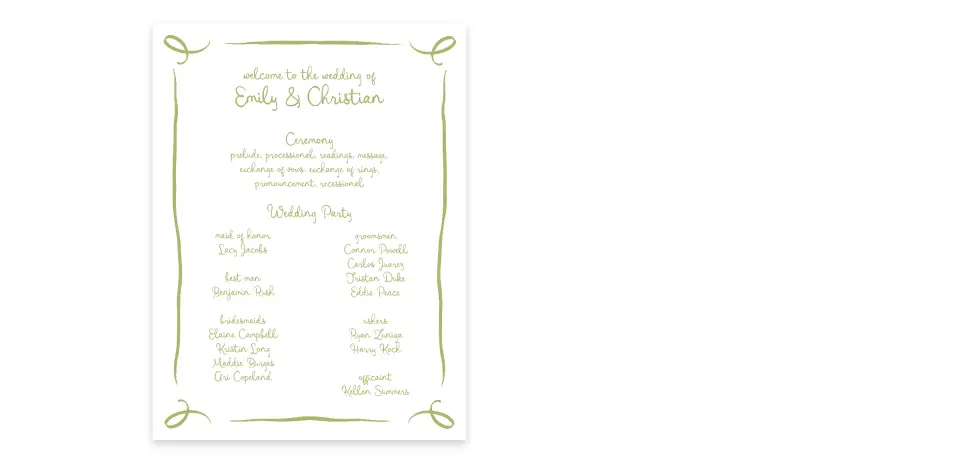 welcome to the wedding of
Emily & Christian
Ceremony
prelude, processional, readings, message,
exchange of vows, exchange of rings,
pronouncement, recessional
Wedding Party
maid of honor
Lacy Jacobs
best man
Benjamin Rush
bridesmaids
Elaine Campbell
Kristin Long
Maddie Burges
Ari Copeland
groomsmen
Connor Powell
Carlos Juarez
Tristan Duke
Eddie Peace
ushers
Ryan Zuniga
Harry Kock
officaint
Kellen Summers